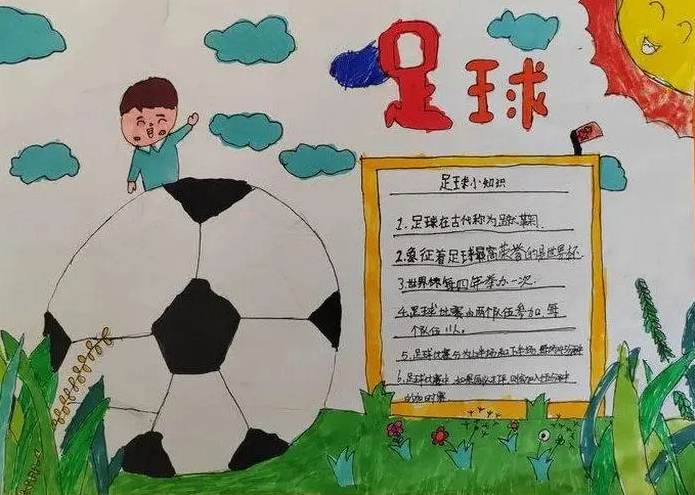 足球
足球小知识
1. 足球在古代称为蹴鞠.
2. 象征着足球最高荣誉的是世界杯.
3. 世界杯每四年举办一次.
4. 足球比赛由两个队伍参加,每
个队伍11人。
5. 足球比赛分为上半场和下半场
6. 足球比赛中
的加时赛